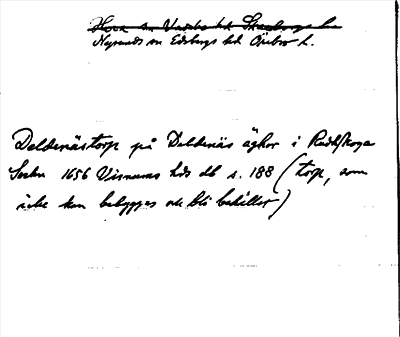 Hova sn Vadsbo hd Skaraborgs län
Nysunds sn Edsbergs hd Örebro l.
Delbenästorp på Delbenäs äghor i Rudskoga
Sochn 1656 Visnums hds db s. 188 (torp, som
icke kan bebygges och bli behållet)